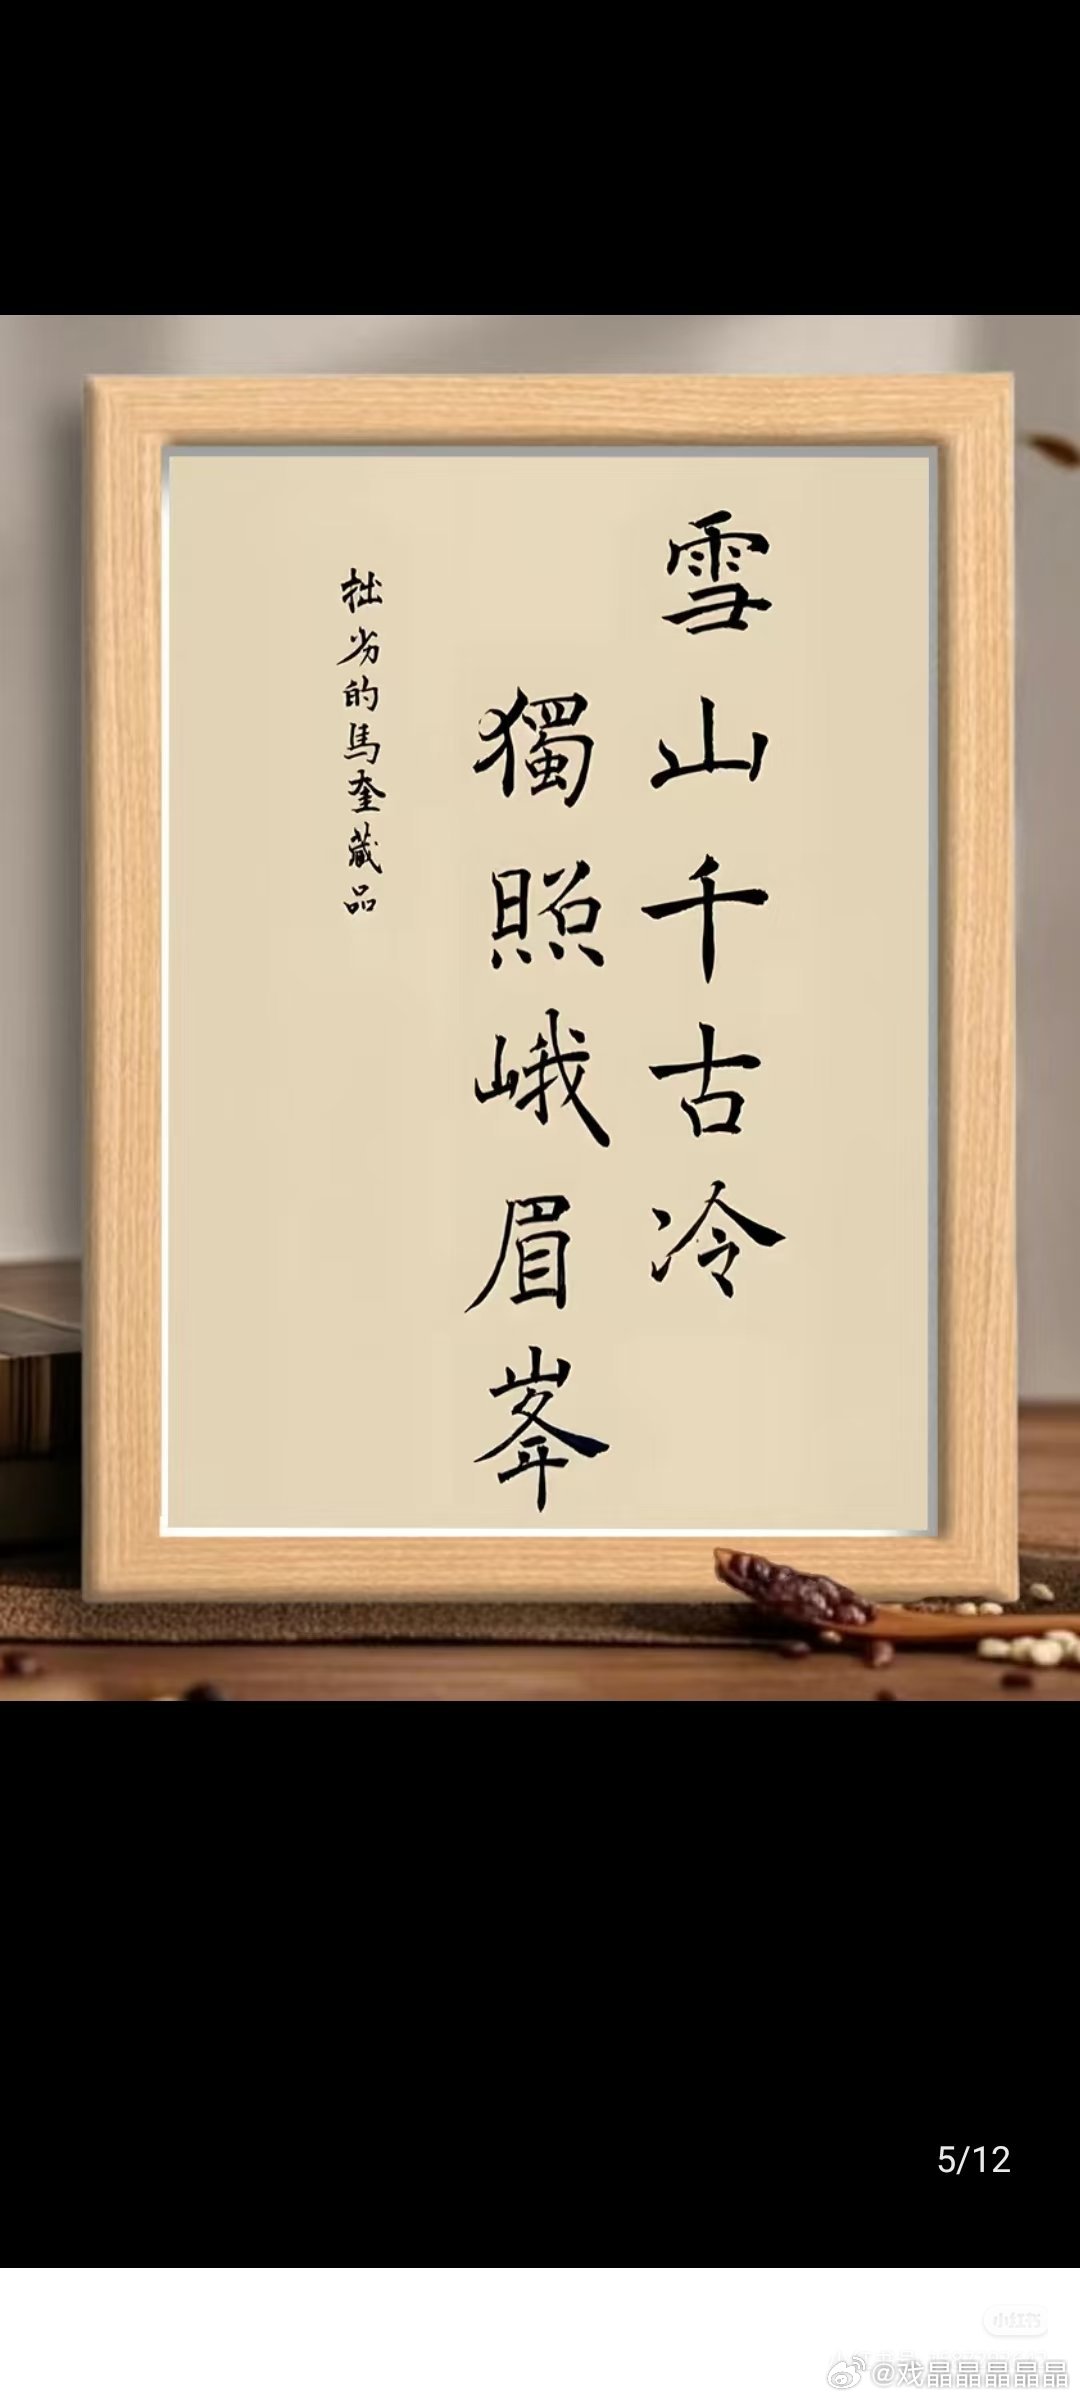 雪山千古冷
獨照峨眉峯
拙劣的馬奎藏品
5/12
小红书
@戏晶晶晶晶晶